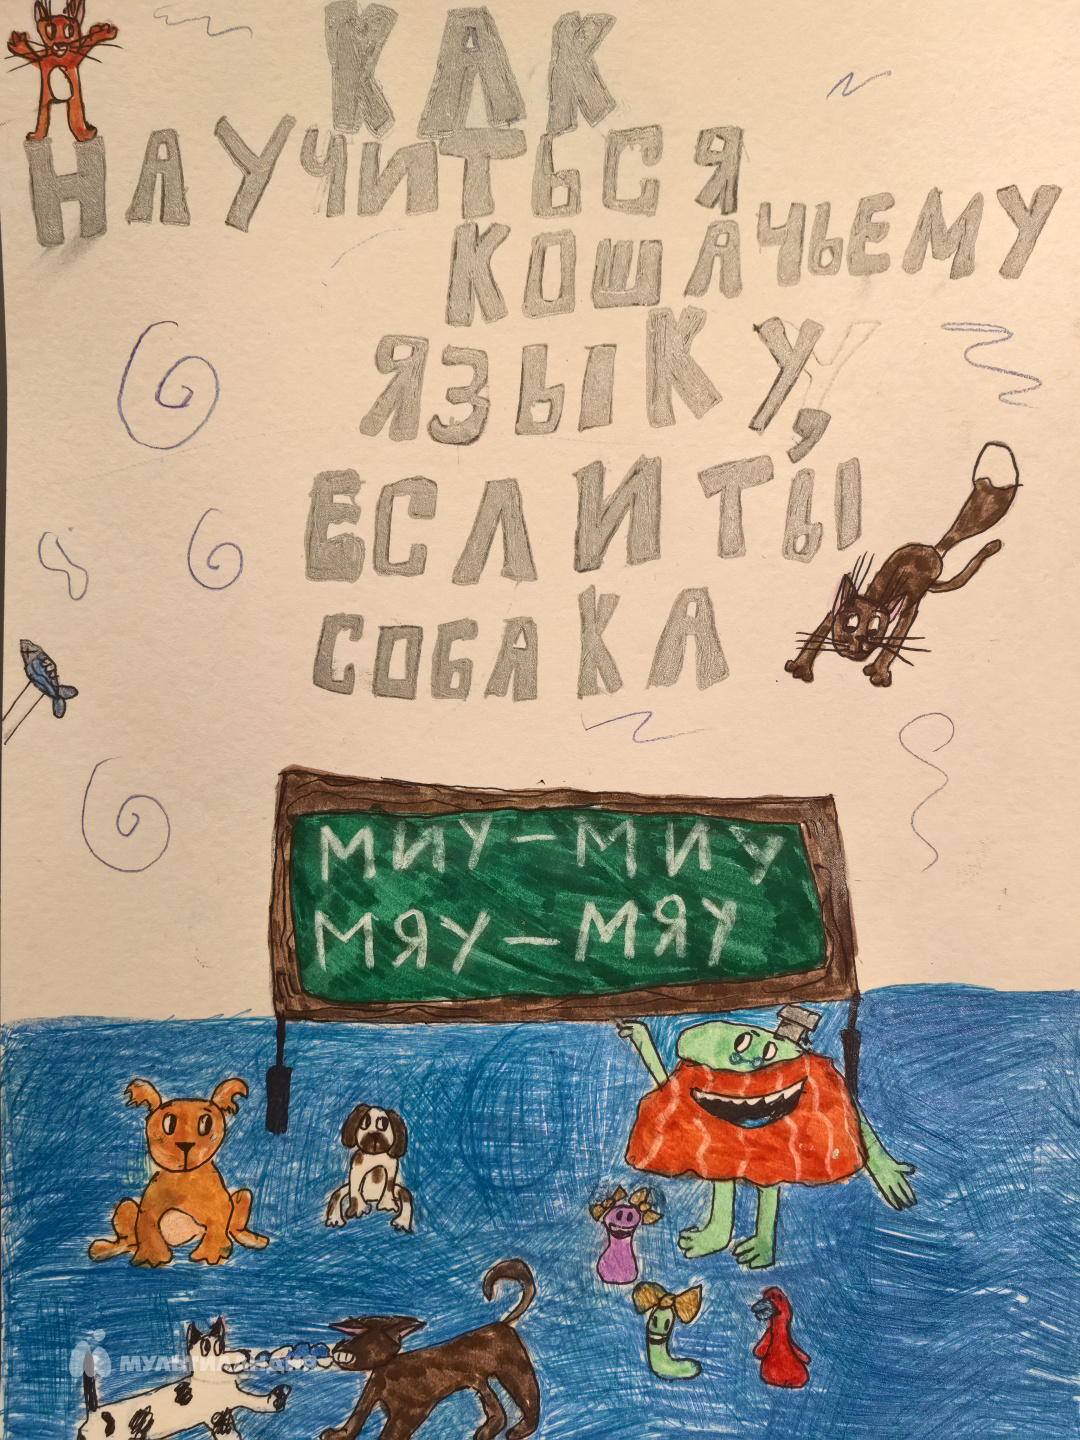 КАК
НАУЧИТЬСЯ
КОШАЧЬЕМУ
ЯЗЫКУ,
ЕСЛИ ТЫ
СОБАКА
МИУ-МИУ
МЯУ-МЯУ
МУЛЬТИЛАНДИЯ